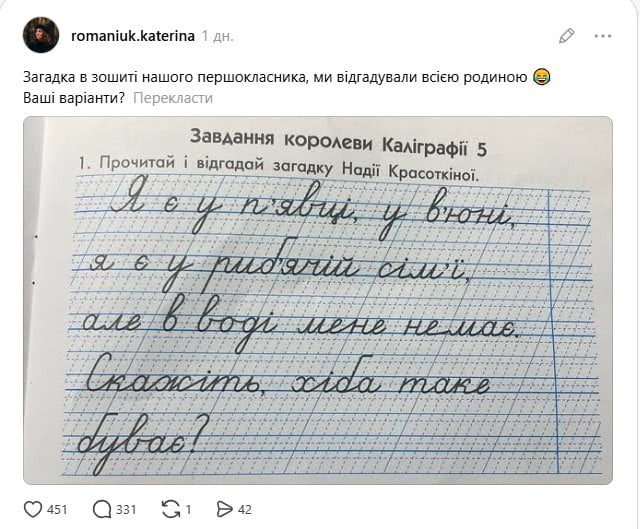 romaniuk.katerina 1 дн.
Загадка в зошиті нашого першокласника, ми відгадували всією родиною 😂
Ваші варіанти? Перекласти
Завдання королеви Каліграфії 5
1. Прочитай і відгадай загадку Надії Красоткіної.
Я є у п'явці, у в'юні,
я є у риб'ячій сім'ї,
але в воді мене немає.
Скажіть, хіба таке
буває?
451 331 1 42